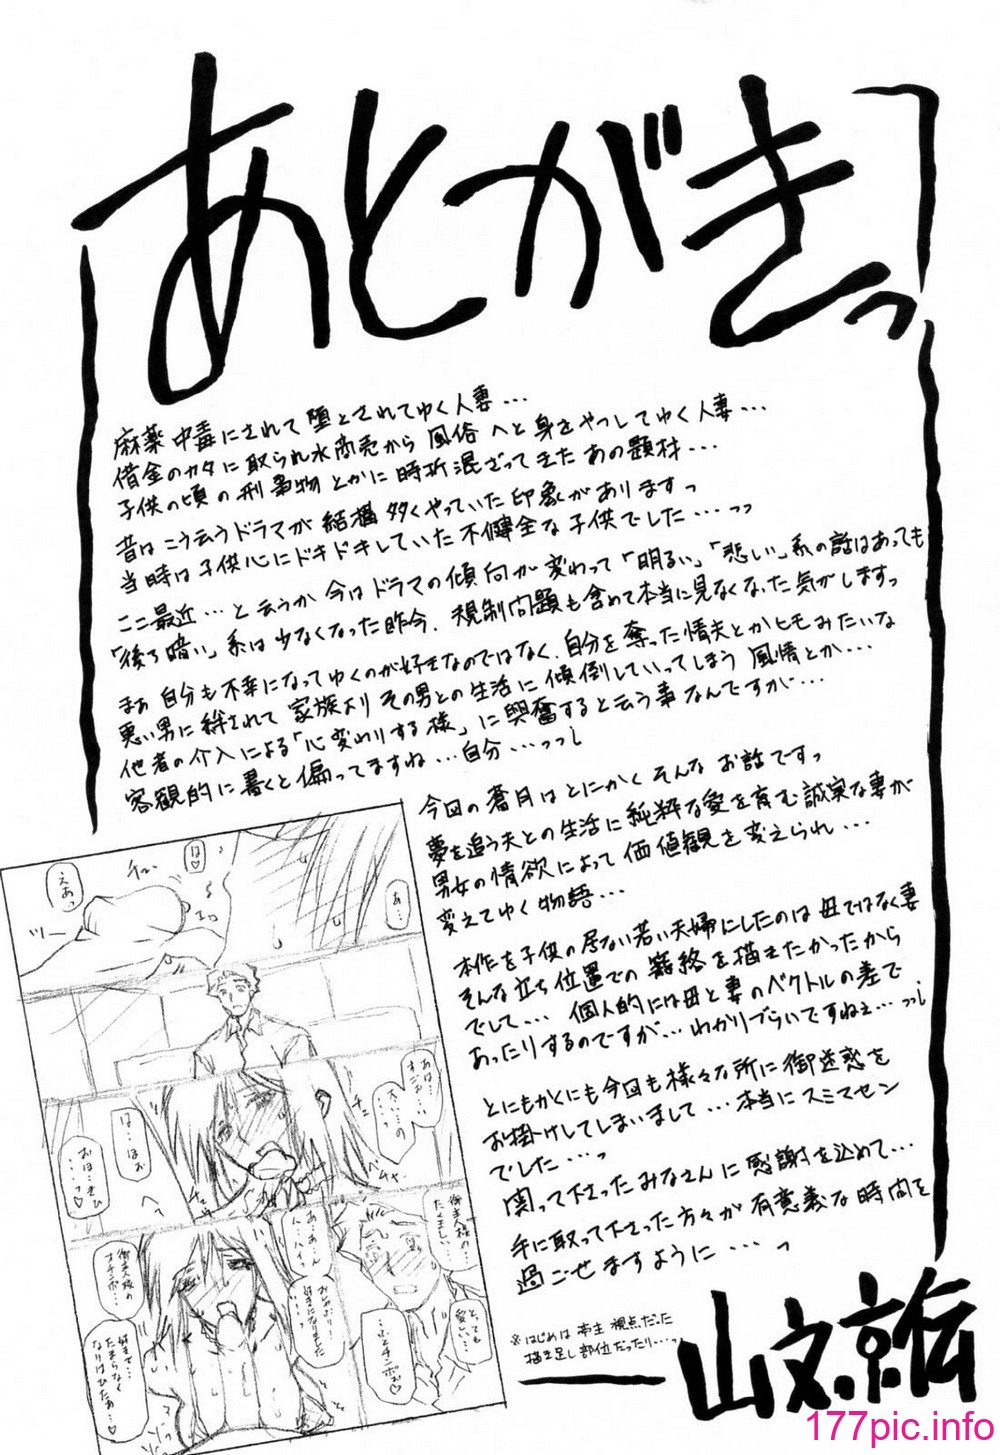 あとがきっ
麻薬中毒にされて堕とされてゆく人妻...
借金のカタに取られ水商売から風俗へと身をやつしてゆく人妻...
子供の頃の刑事物とかに時折混ざってきたあの題材...
昔はこう云うドラマが結構多くやっていた印象がありますっ
当時は子供心にドキドキしていた不健全な子供でした...っっ
ここ最近...と云うか今はドラマの傾向が変わって「明るい」「悲しい」系の話はあっても
「後ろ暗い」系は少なくなった昨今、規制問題も含めて本当に見なくなった気がしますっ
まぁ自分も不幸になってゆくのが好きなのではなく、自分を奪った情夫とかヒモみたいな
悪い男に絆されて家族よりその男との生活に傾倒していってしまう風情とか...
他者の介入による「心変わりする様」に興奮すると云う事なんですが...
客観的に書くと偏ってますね...自分...っっ
今回の蒼月はとにかくそんなお話ですっ
夢を追う夫との生活に純粋な愛を育む誠実な妻が
男女の情欲によって価値観を変えられ...
変えてゆく物語...
本作を子供の居ない若い夫婦にしたのは母ではなく妻
そんな立ち位置での籠絡を描きたかったから
でして...個人的には母と妻のベクトルの差で
あったりするのですが...わかりづらいですねぇ...っっ
とにもかくにも今回も様々な所に御迷惑を
お掛けしてしまいまして...本当にスミマセン
でした...っ
関って下さったみなさんに感謝を込めて...
手に取って下さった方々が有意義な時間を
過ごせますように...っ
※はじめは 亭主 視点だった
描き足し部位だったり...っ
山文京伝
177pic.info